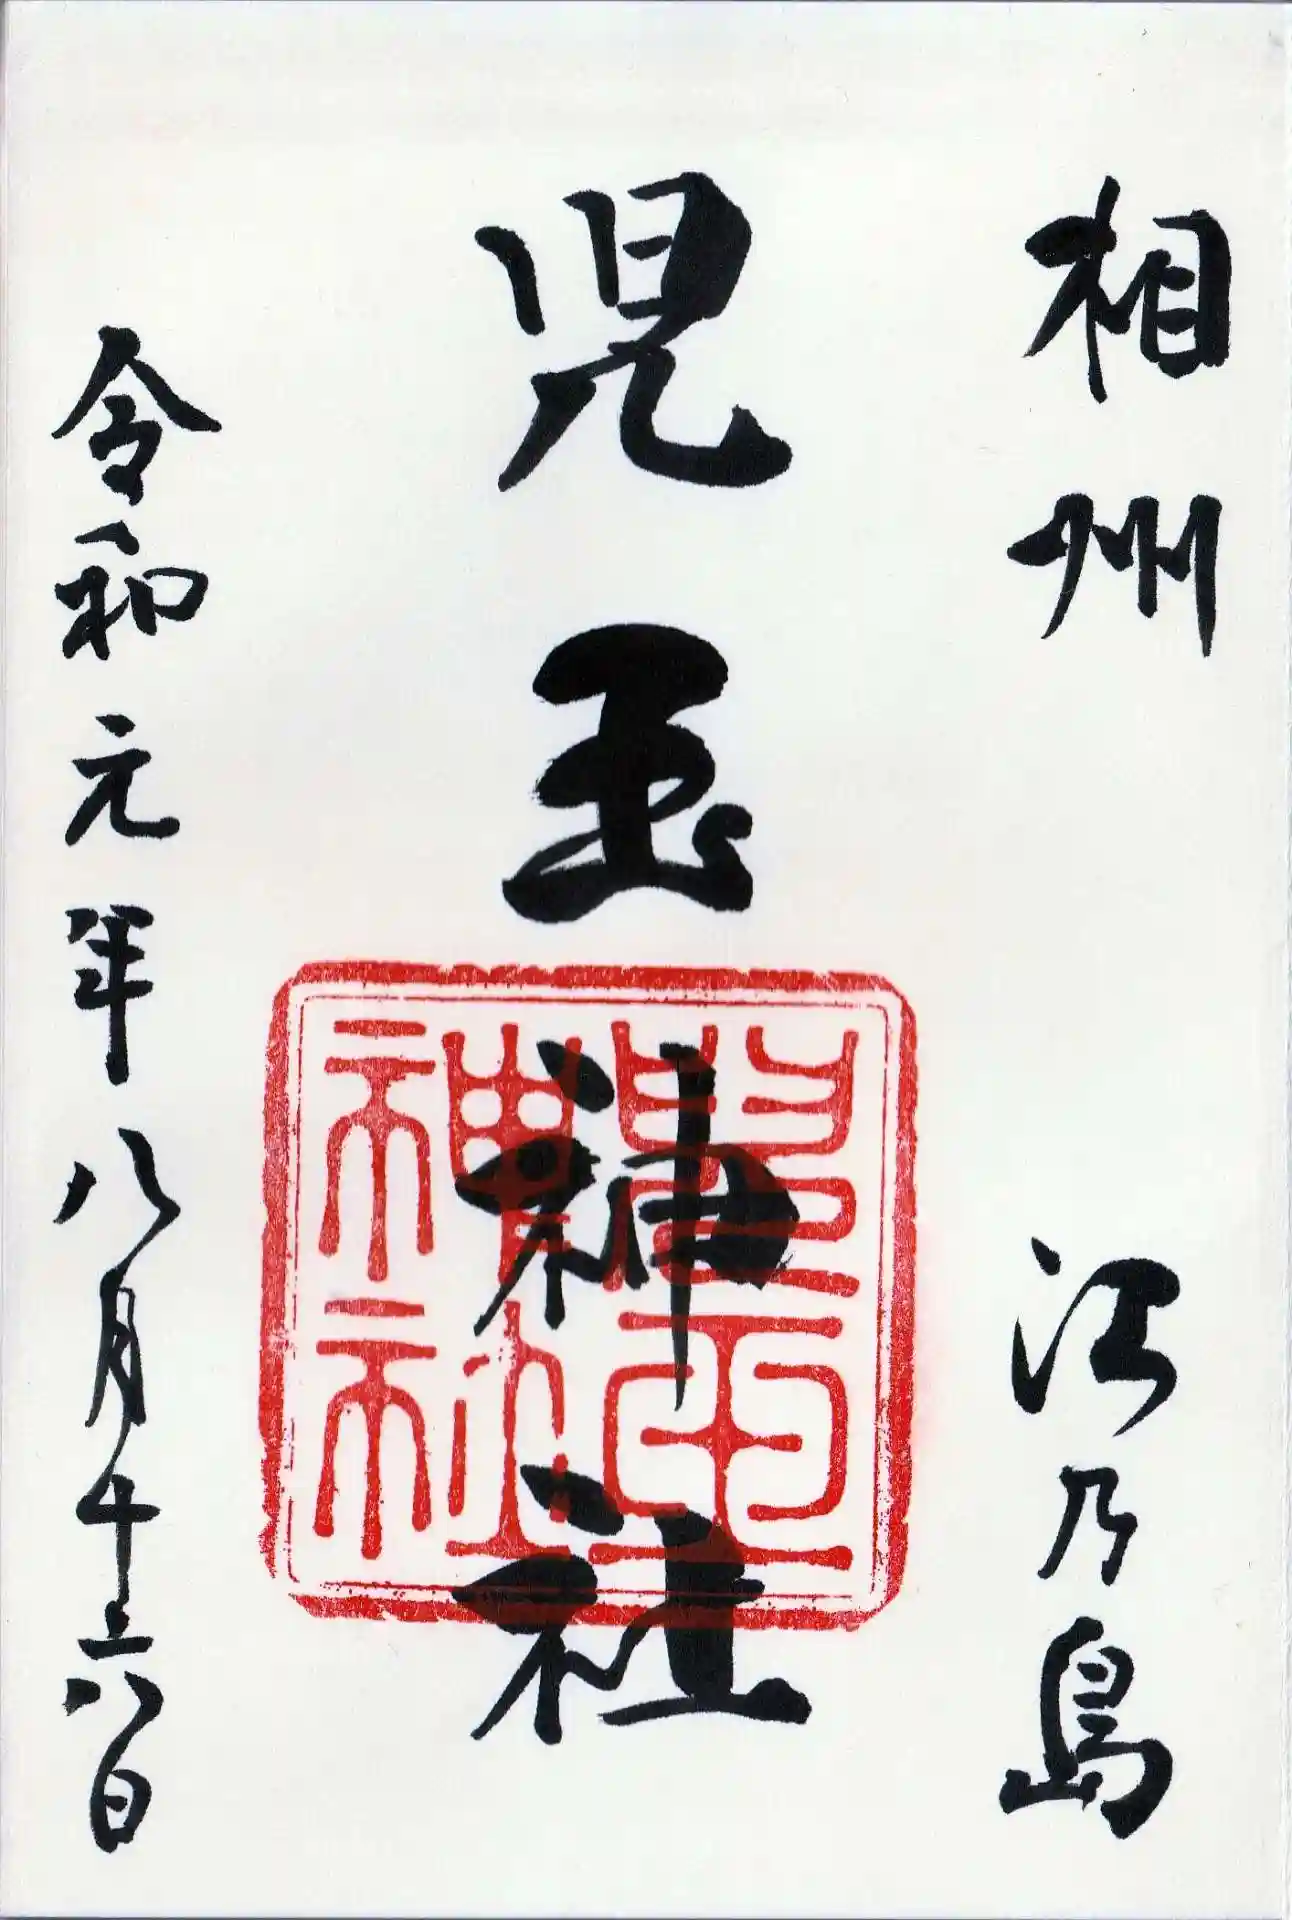 相州 江乃島
児玉神社
令和元年八月十六日
兒玉神社